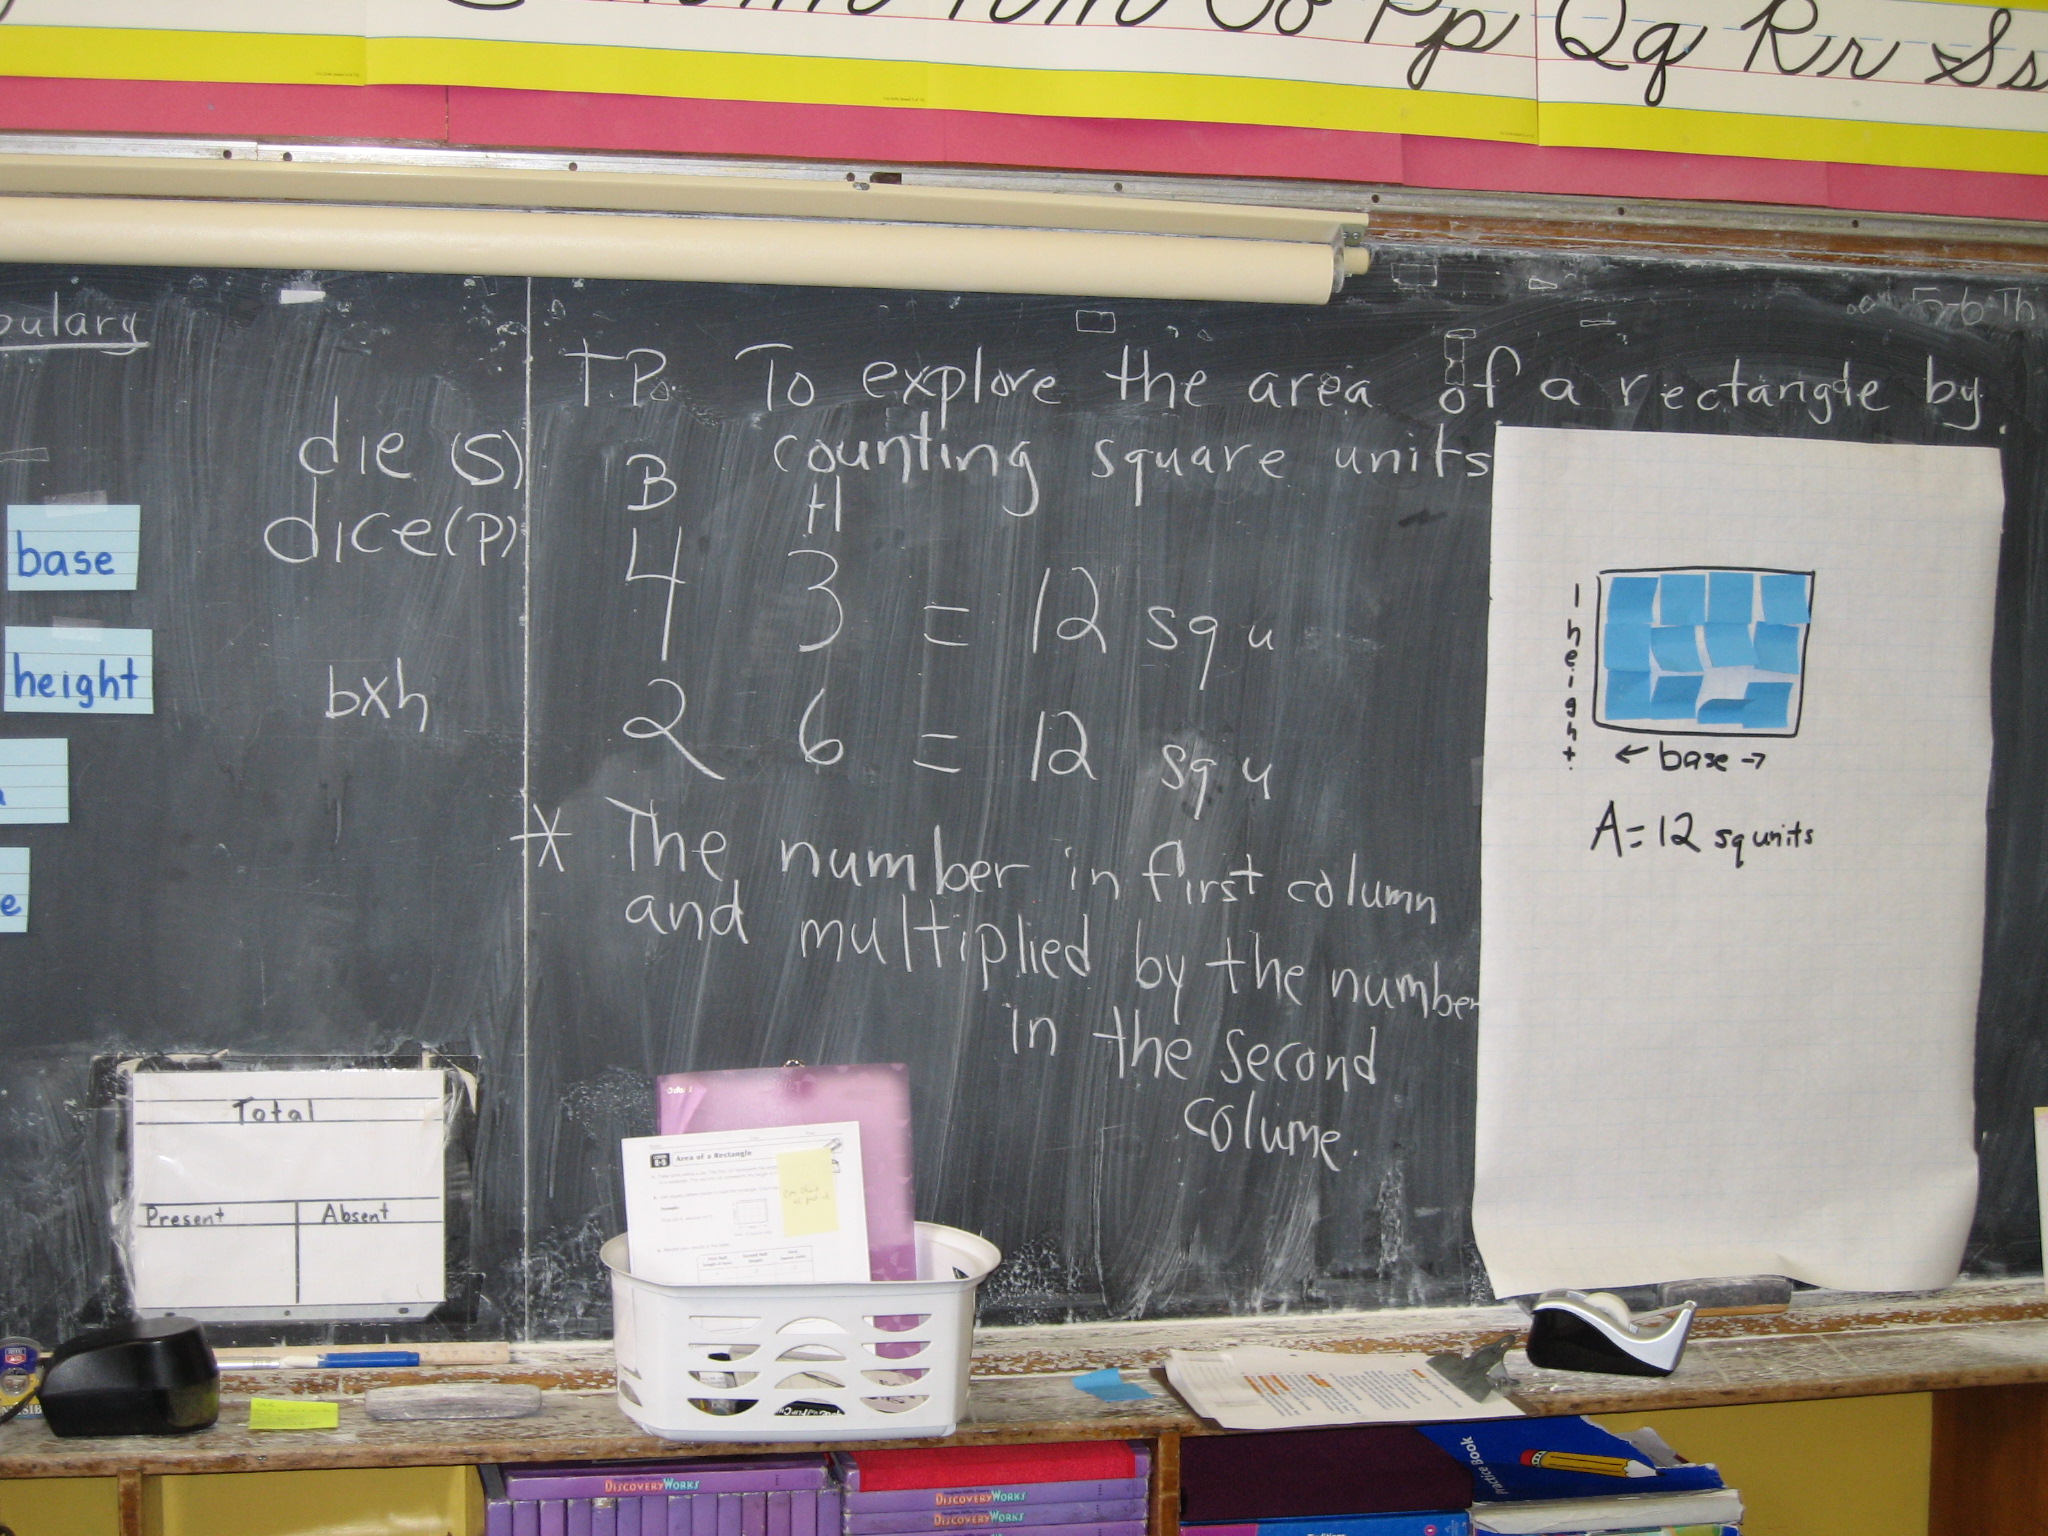 Oo Pp Qq Rr Ss
5-6 Th
bulary
T.P. To explore the area of a rectangle by
counting square units
die (S)
dice (P)
B H
base
4 3 = 12 squ
height
bxh
2 6 = 12 squ
e
* The number in first column
and multiplied by the number
in the second
colume.
height
← base →
A = 12 sq units
Total
Present Absent
Area of a Rectangle
DISCOVERYWORKS
DISCOVERYWORKS
DISCOVERYWORKS
Practice Book